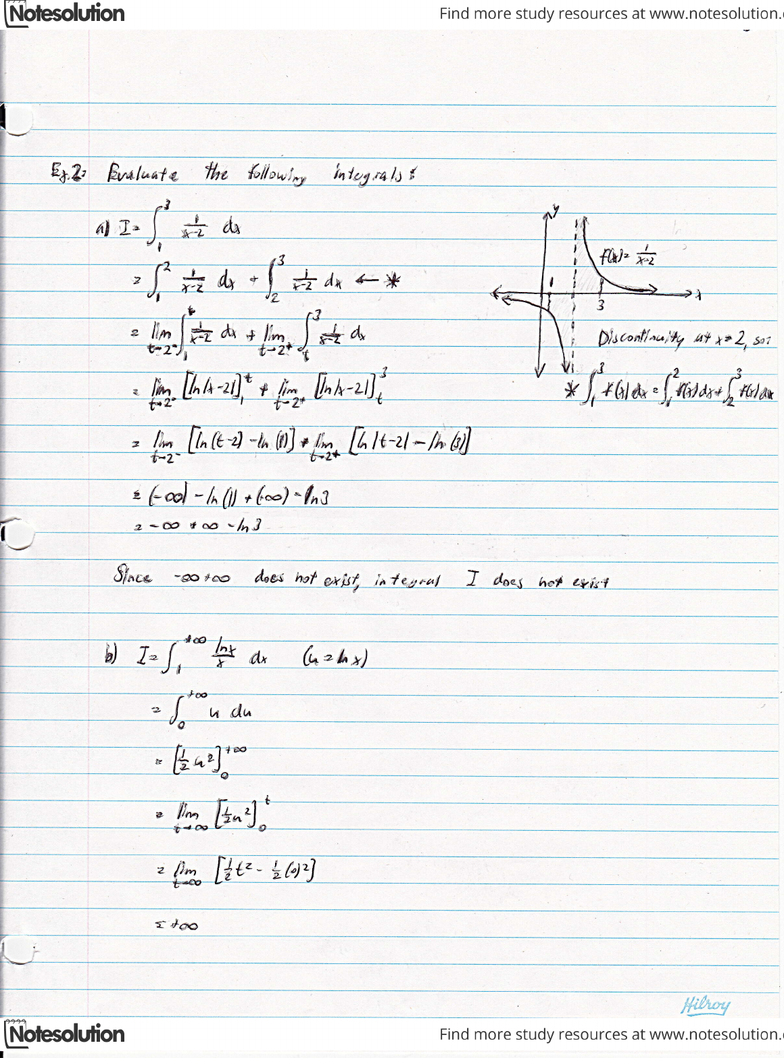 Notesolution
Find more study resources at www.notesolution.
Ex.2: Evaluate the following integrals:
a) I = ∫₁³ 1/(x-2) dx
= ∫₁² 1/(x-2) dx + ∫₂³ 1/(x-2) dx ← *
= lim t→2⁻ ∫₁ᵗ 1/(x-2) dx + lim t→2⁺ ∫ₜ³ 1/(x-2) dx
= lim t→2⁻ [ln|x-2|]₁ᵗ + lim t→2⁺ [ln|x-2|]ₜ³
= lim t→2⁻ [ln(t-2) - ln(1)] + lim t→2⁺ [ln|t-2| - ln(3)]
= (-∞) - ln(1) + (-∞) - ln3
= -∞ + ∞ - ln3
y
f(x) = 1/(x-2)
1
3
x
Discontinuity at x=2, so:
* ∫₁³ f(x)dx = ∫₁² f(x)dx + ∫₂³ f(x)dx
Since -∞+∞ does not exist, integral I does not exist
b) I = ∫₁^{+∞} lnx/x dx (u = ln x)
= ∫₀^{+∞} u du
= [1/2 u²]₀^{+∞}
= lim t→∞ [1/2 u²]₀ᵗ
= lim t→∞ [1/2 t² - 1/2 (0)²]
= +∞
Hilroy
Notesolution
Find more study resources at www.notesolution.